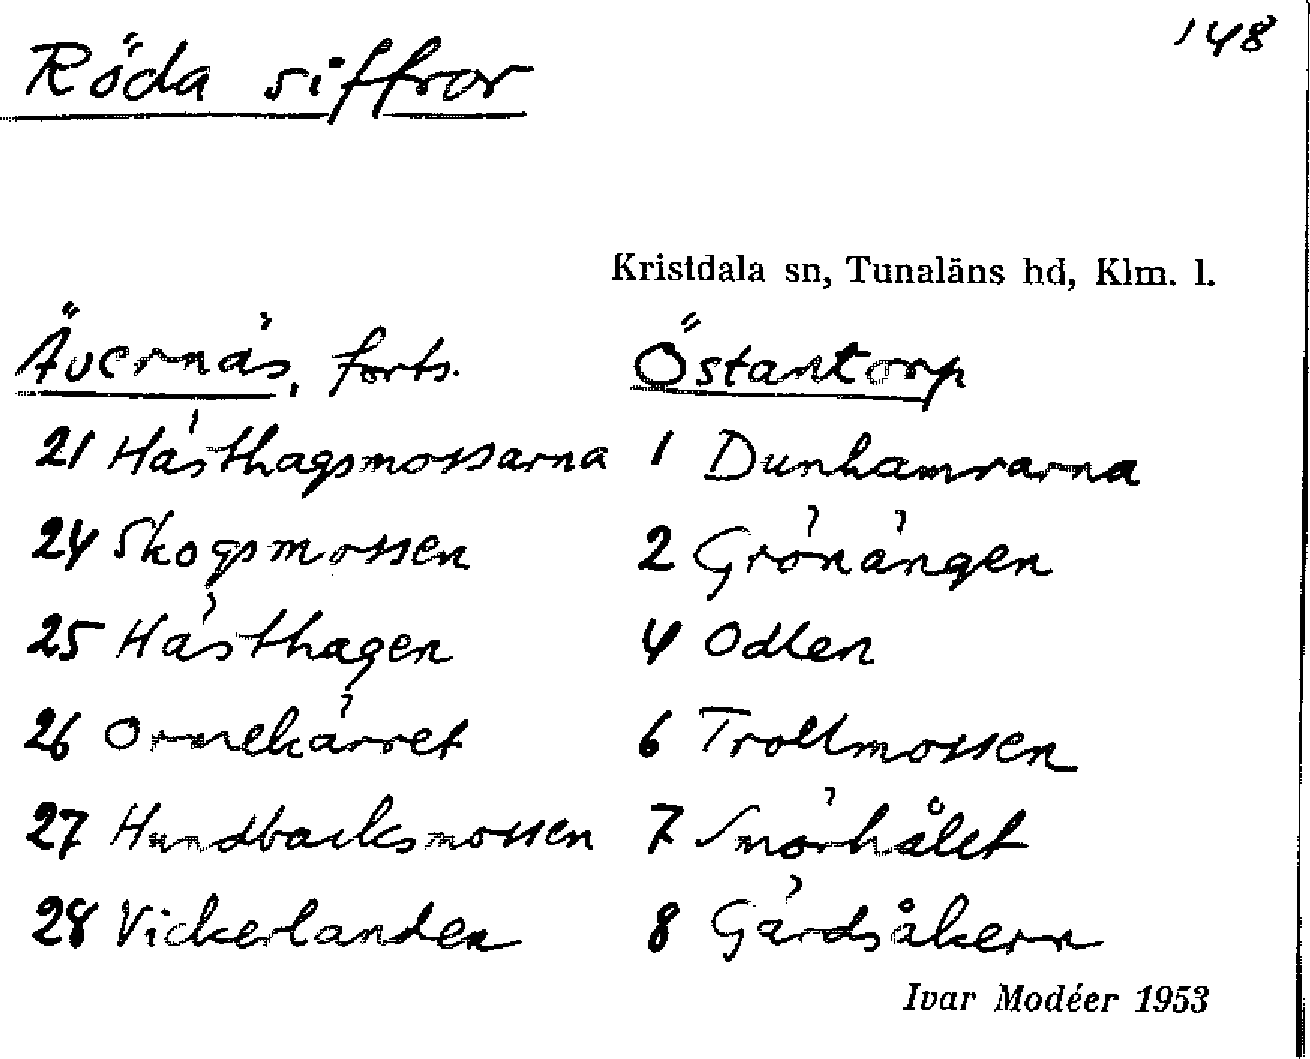 148
Röda siffror
Kristdala sn, Tunaläns hd, Klm. l.
Ävernäs, forts.
21 Hästhagsmossarna
24 Skogsmossen
25 Hästhagen
26 Ormekärret
27 Hundbacksmossen
28 Vickerlanden
Östantorp
1 Dunhamrarna
2 Grönängen
4 Odlen
6 Trollmossen
7 Smörhålet
8 Gärdsåkern
Ivar Modéer 1953